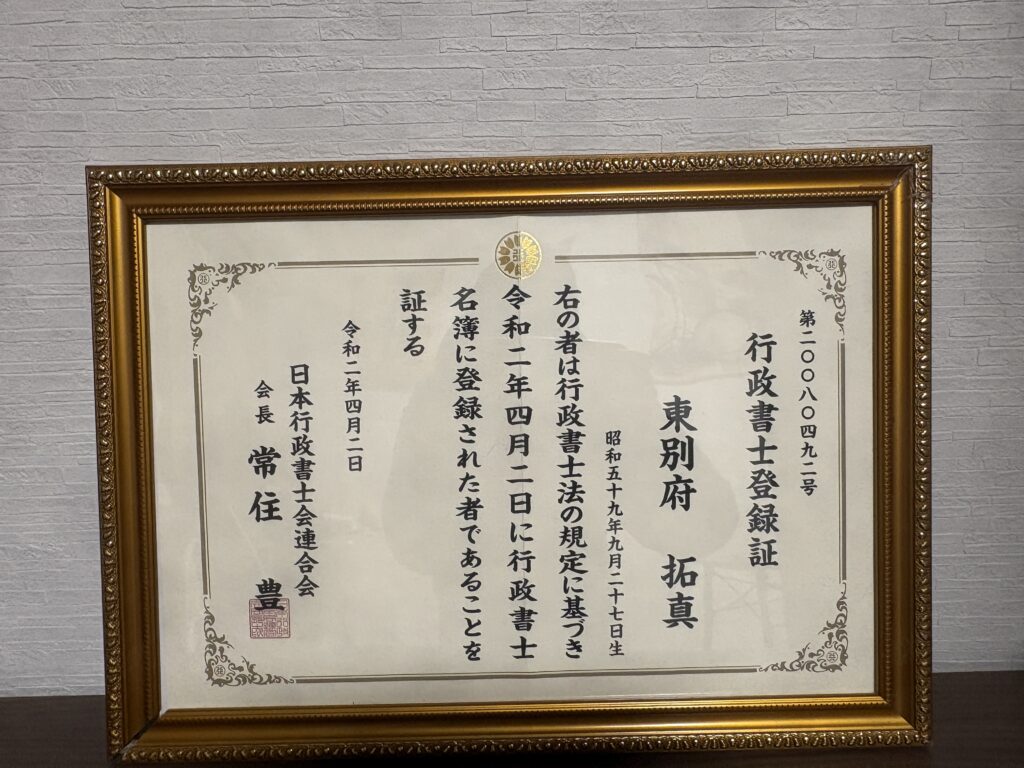 第二〇〇八〇四九二号
行政書士登録証
東別府 拓真
昭和五十九年九月二十七日生
右の者は行政書士法の規定に基づき
令和二年四月二日に行政書士
名簿に登録された者であることを
証する
令和二年四月二日
日本行政書士会連合会
会長 常住 豊